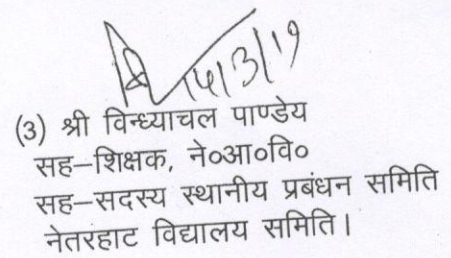 14/3/19
(3) श्री विन्ध्याचल पाण्डेय
सह–शिक्षक, ने०आ०वि०
सह–सदस्य स्थानीय प्रबंधन समिति
नेतरहाट विद्यालय समिति।